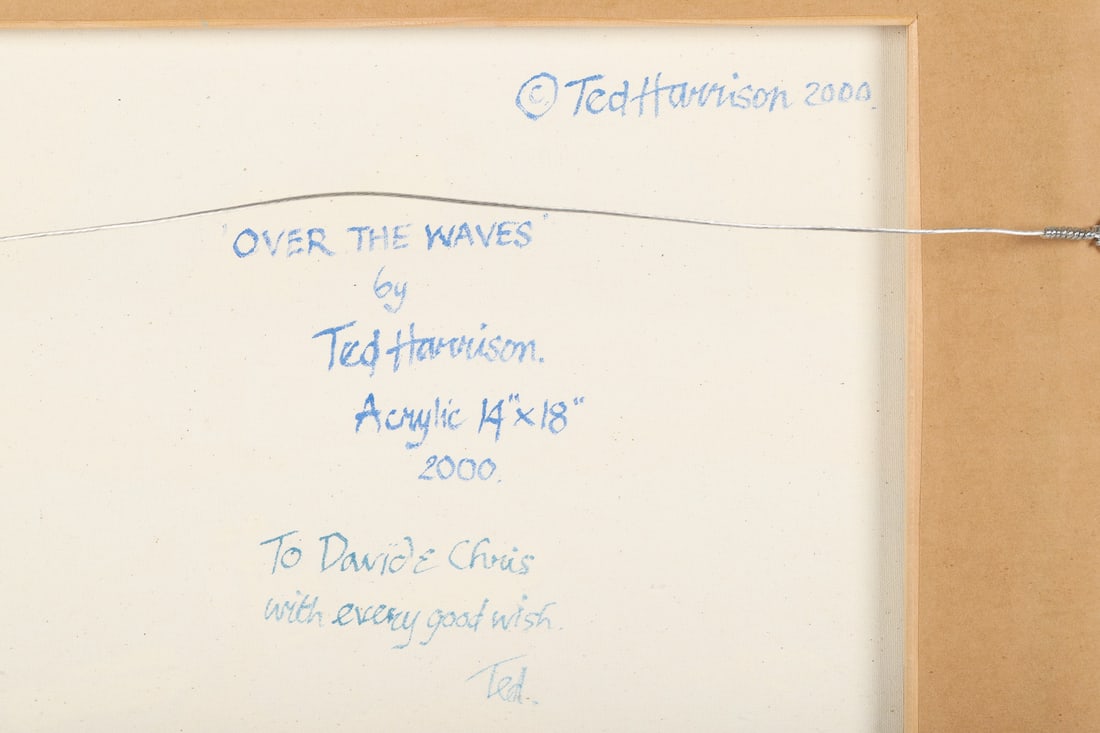 © Ted Harrison 2000.
"OVER THE WAVES"
by
Ted Harrison.
Acrylic 14"x18"
2000.
To David & Chris
with every good wish.
Ted.